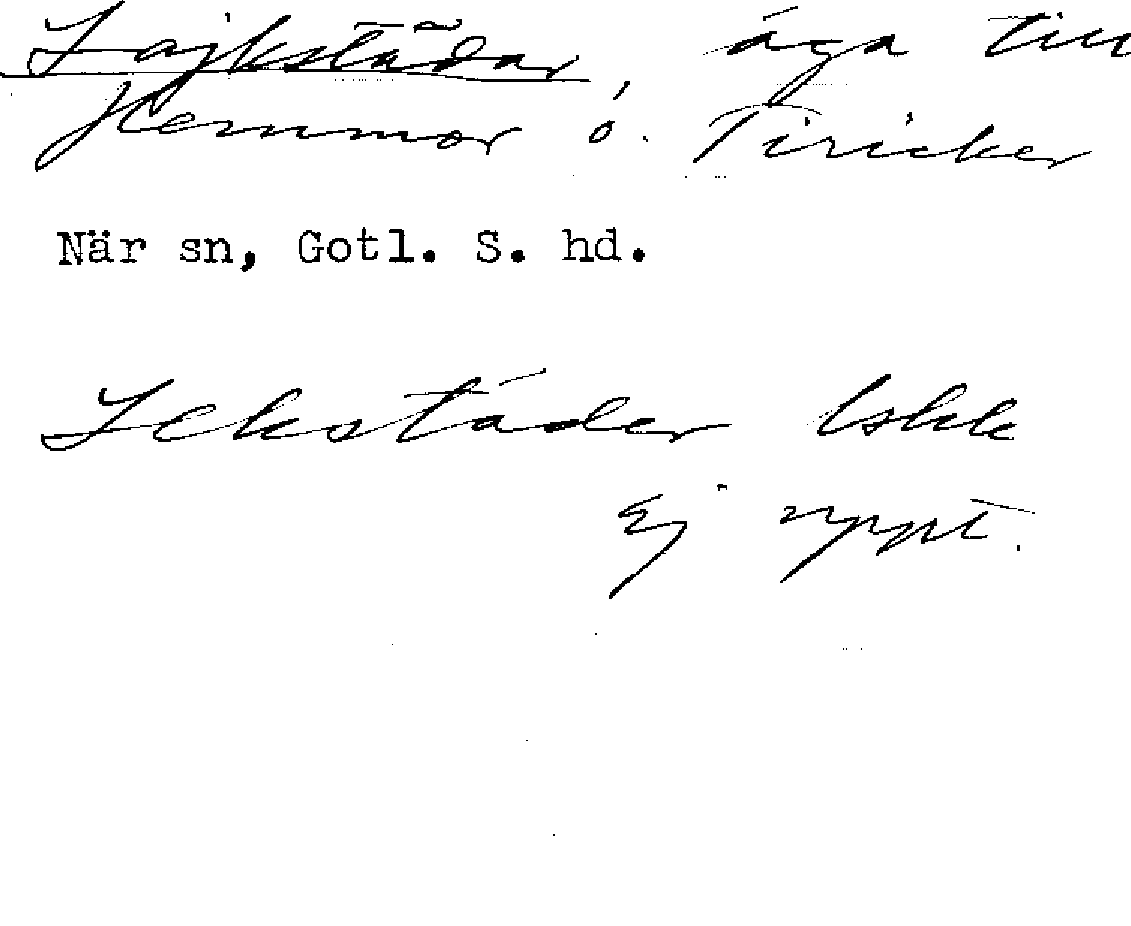 Lajkstädar, äga till
Hemmor o. Tiricker
När sn, Gotl. S. hd.
Lekstäder lskk
Ej uppt.